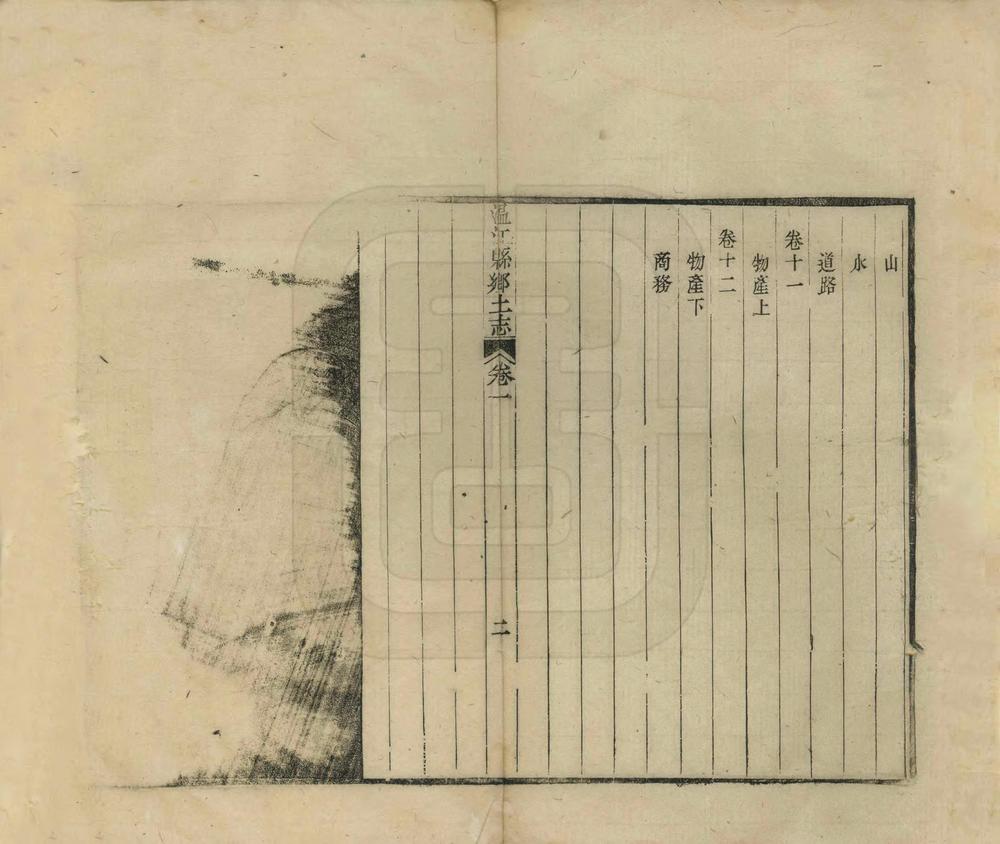 山
水
道路
卷十一
物產上
卷十二
物產下
商務
溫江縣鄉土志 卷一 二